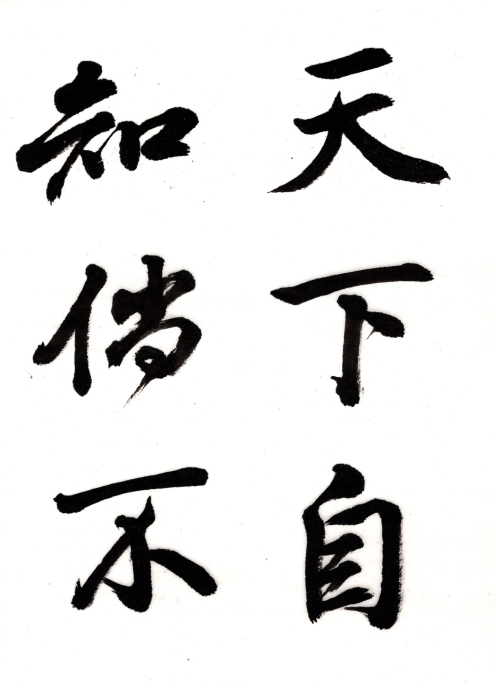 天下自
知倘不